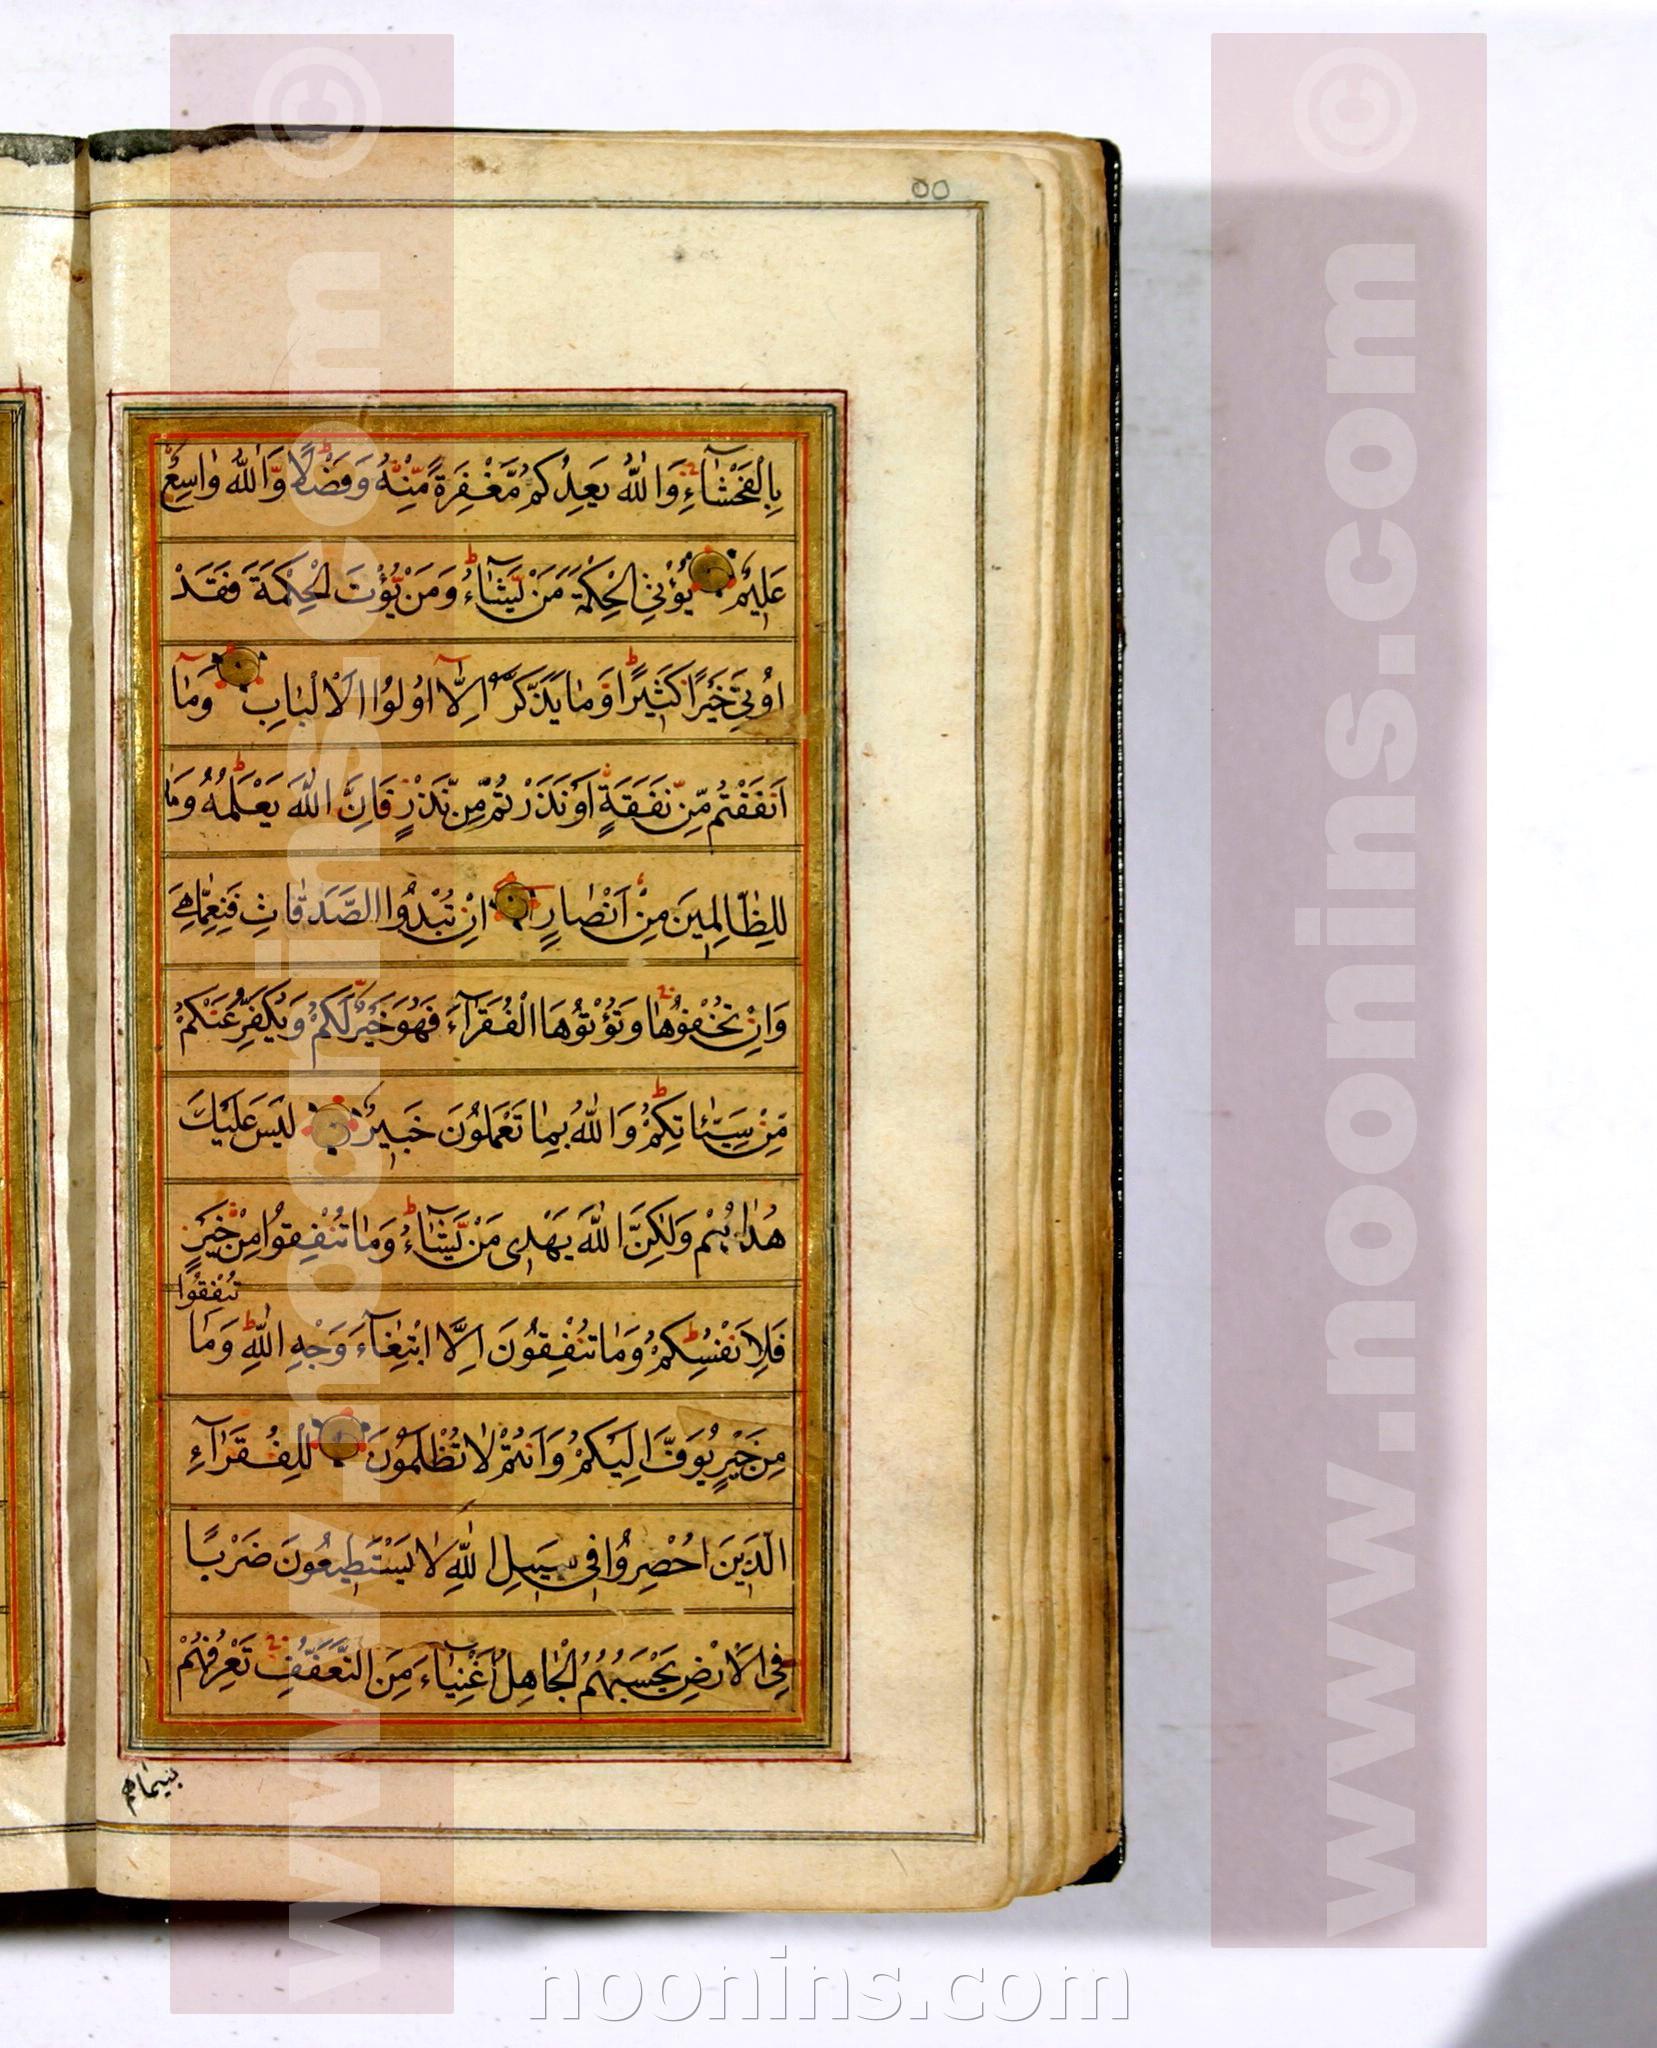 ۵۵
بِالْفَحْشَاءِ وَاللهُ يَعِدُكُمْ مَّغْفِرَةً مِّنْهُ وَفَضْلًا وَّاللهُ وَاسِعٌ
عَلِيمٌ يُؤْتِي الْحِكْمَةَ مَنْ يَّشَاءُ وَمَنْ يُّؤْتَ الْحِكْمَةَ فَقَدْ
اُوتِيَ خَيْرًا كَثِيرًا وَمَا يَذَّكَّرُ اِلَّا اُولُوا الْاَلْبَابِ وَمَا
اَنْفَقْتُمْ مِّنْ نَّفَقَةٍ اَوْ نَذَرْتُمْ مِّنْ نَّذْرٍ فَاِنَّ اللهَ يَعْلَمُهُ وَمَا
لِلظَّالِمِينَ مِنْ اَنْصَارٍ اِنْ تُبْدُوا الصَّدَقَاتِ فَنِعِمَّا هِيَ
وَاِنْ تُخْفُوهَا وَتُؤْتُوهَا الْفُقَرَاءَ فَهُوَ خَيْرٌ لَّكُمْ وَيُكَفِّرُ عَنْكُمْ
مِّنْ سَيِّئَاتِكُمْ وَاللهُ بِمَا تَعْمَلُونَ خَبِيرٌ لَيْسَ عَلَيْكَ
هُدٰاهُمْ وَلٰكِنَّ اللهَ يَهْدِي مَنْ يَّشَاءُ وَمَا تُنْفِقُوا مِنْ خَيْرٍ
تُنْفِقُوا
فَلِاَنْفُسِكُمْ وَمَا تُنْفِقُونَ اِلَّا ابْتِغَاءَ وَجْهِ اللهِ وَمَا
مِنْ خَيْرٍ يُوَفَّ اِلَيْكُمْ وَاَنْتُمْ لَا تُظْلَمُونَ لِلْفُقَرَاءِ
الَّذِينَ اُحْصِرُوا فِي سَبِيلِ اللهِ لَا يَسْتَطِيعُونَ ضَرْبًا
فِي الْاَرْضِ يَحْسَبُهُمُ الْجَاهِلُ اَغْنِيَاءَ مِنَ التَّعَفُّفِ تَعْرِفُهُمْ
بِسِيمَاهُمْ
© www.noonins.com
© www.noonins.com
noonins.com